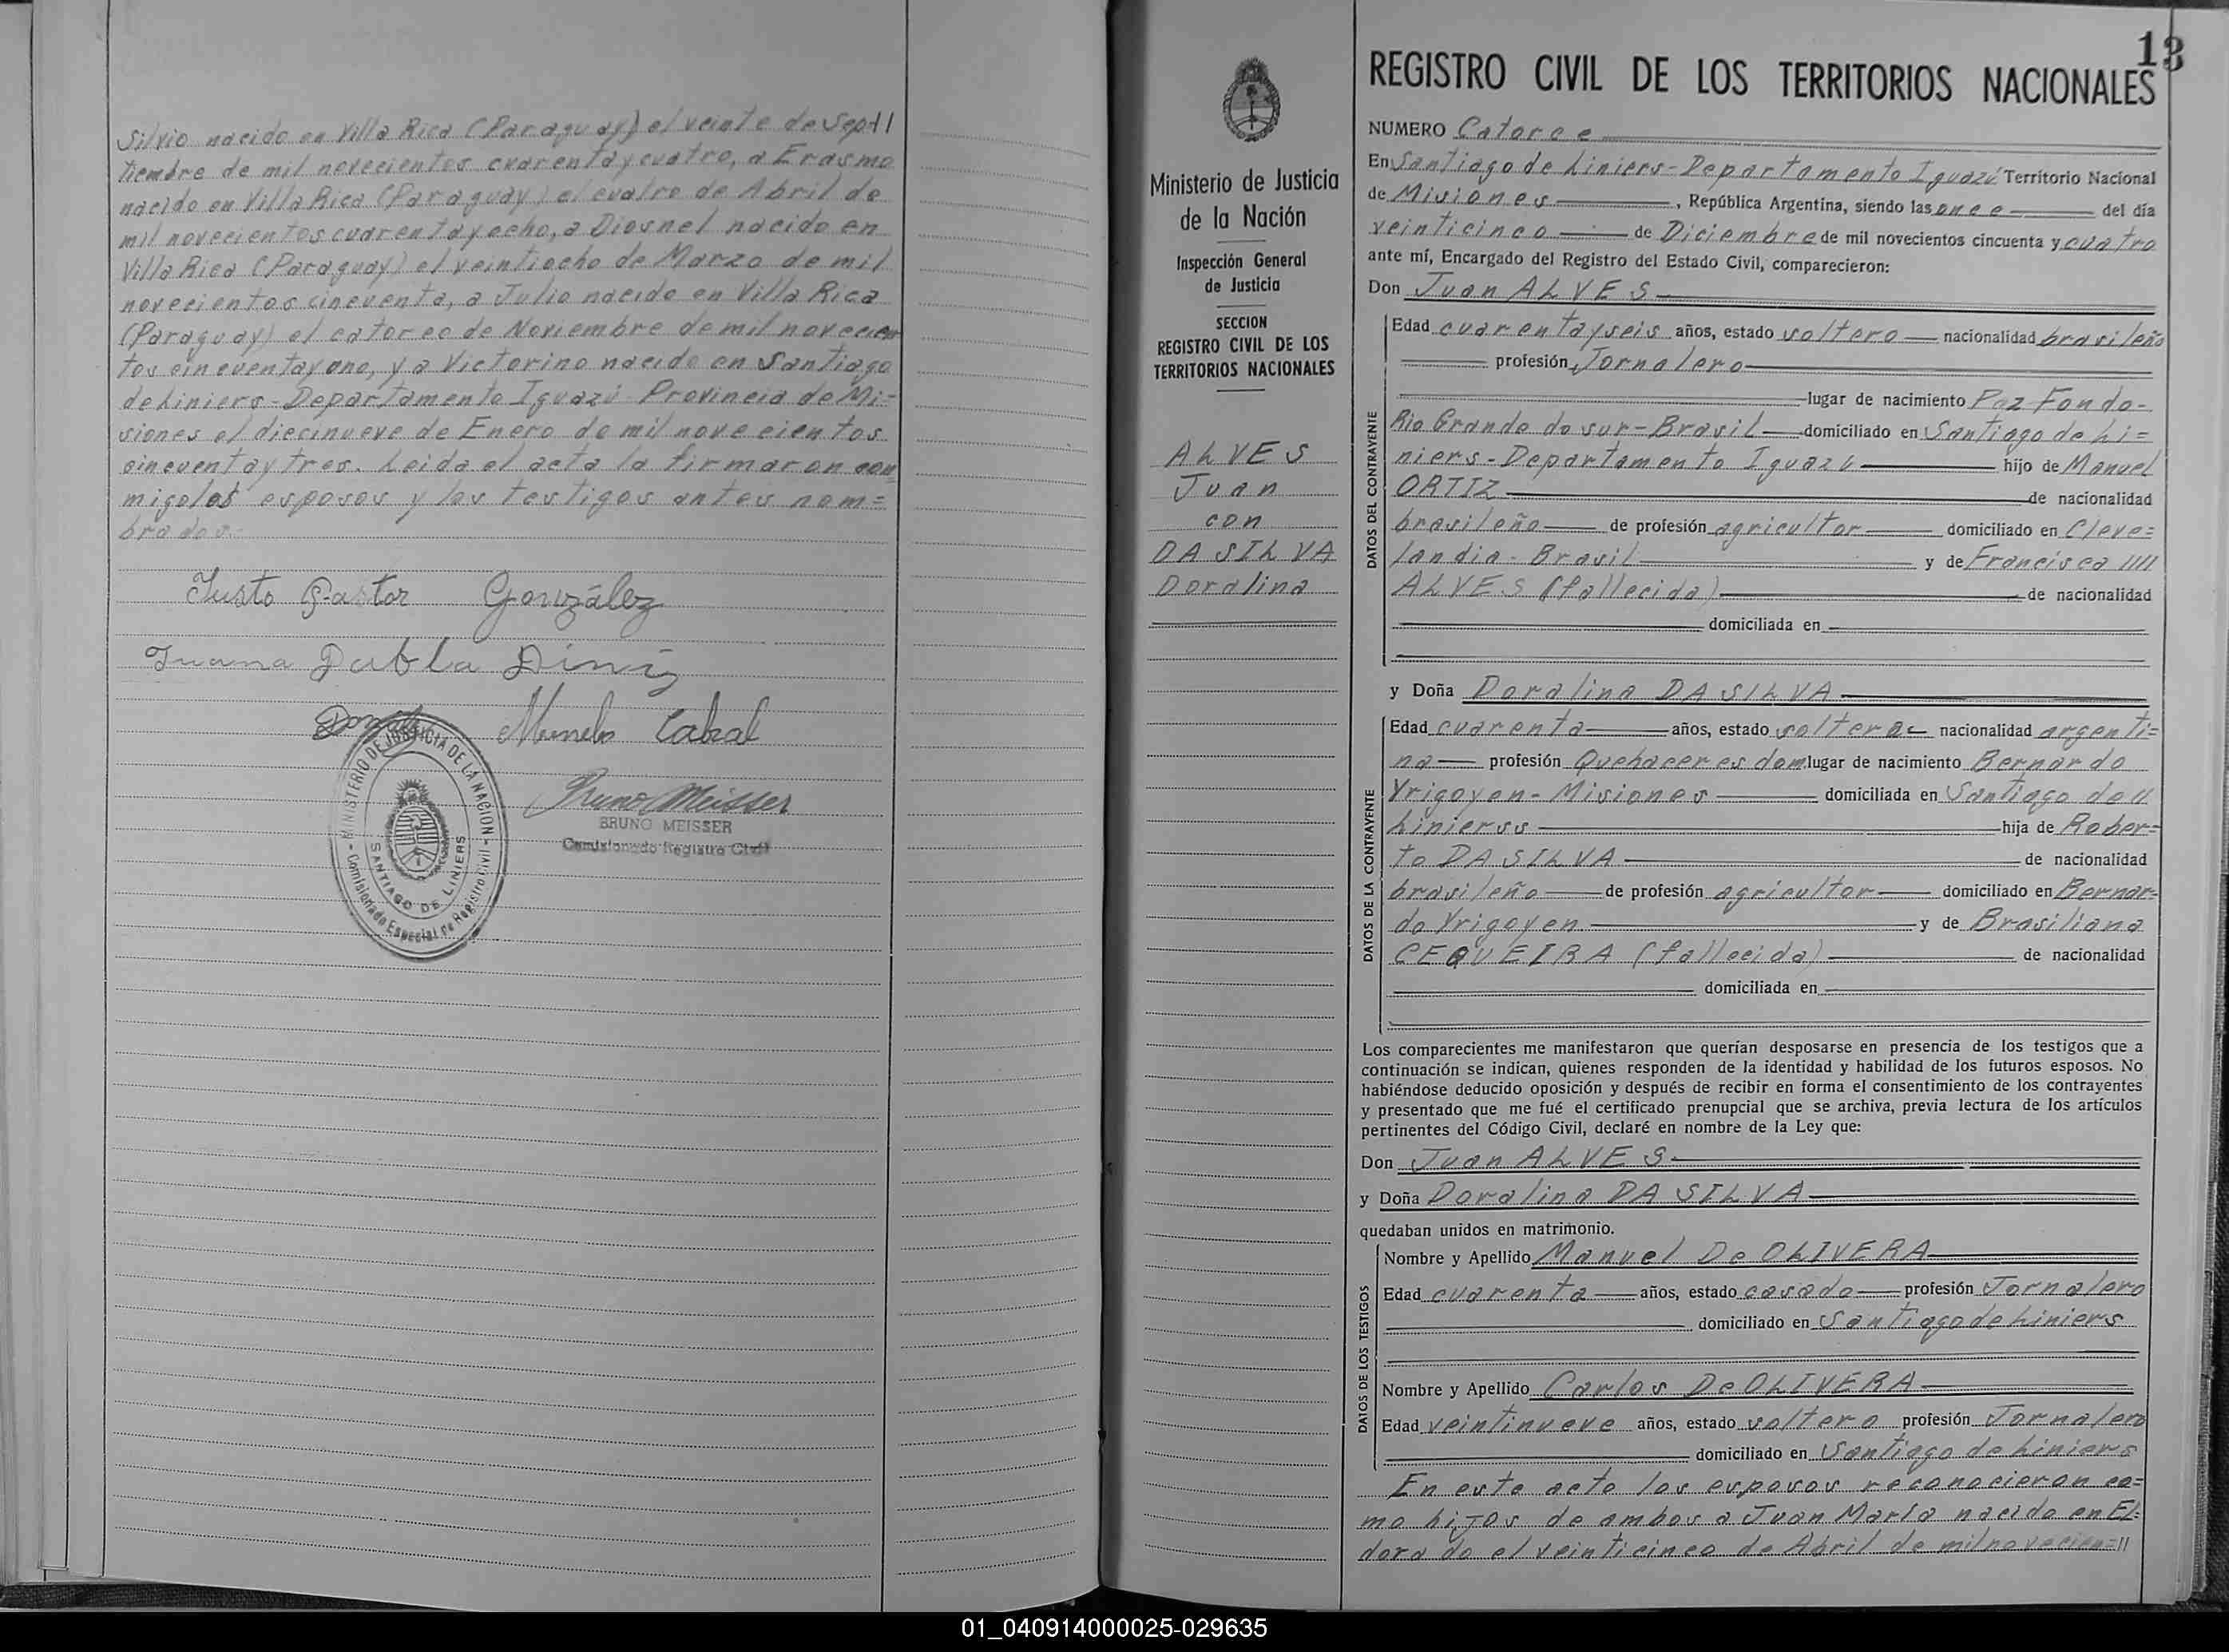 Silvio nacido en Villa Rica (Paraguay) el veinte de Sep-//
tiembre de mil novecientos cuarentaycuatro, a Erasmo
nacido en Villa Rica (Paraguay) el cuatro de Abril de
mil novecientos cuarentayocho, a Diosnel nacido en
Villa Rica (Paraguay) el veintiocho de Marzo de mil
novecientos cincuenta, a Julio nacido en Villa Rica
(Paraguay) el catorce de Noviembre de mil novecien
tos cincuentayuno, y a Victorino nacido en Santiago
de Liniers-Departamento Iguazú Provincia de Mi=
siones el diecinueve de Enero de mil novecientos
cincuentaytres. Leida el acta la firmaron con
migo los esposos y los testigos antes nom=
brados.
Justo Pastor González
Juana Pabla Diniz
Cabral
Bruno Meisser
BRUNO MEISSER
Comisionado Registro Civil
MINISTERIO DE JUSTICIA DE LA NACION
SANTIAGO DE LINIERS
Comisionado Especial de Registro Civil
13
Ministerio de Justicia
de la Nación
Inspección General
de Justicia
SECCION
REGISTRO CIVIL DE LOS
TERRITORIOS NACIONALES
ALVES
Juan
con
DA SILVA
Doralina
REGISTRO CIVIL DE LOS TERRITORIOS NACIONALES
NUMERO Catorce
En Santiago de Liniers-Departamento Iguazú Territorio Nacional
de Misiones, República Argentina, siendo las once del día
veinticinco de Diciembre de mil novecientos cincuenta y cuatro
ante mí, Encargado del Registro del Estado Civil, comparecieron:
Don Juan ALVES
DATOS DEL CONTRAYENTE
Edad cuarentayseis años, estado soltero nacionalidad brasileño
profesión Jornalero
lugar de nacimiento Paz Fondo-
Rio Grande do sur-Brasil domiciliado en Santiago de Li=
niers-Departamento Iguazú hijo de Manuel
ORTIZ de nacionalidad
brasileño de profesión agricultor domiciliado en Cleve=
landia-Brasil y de Francisca ////
ALVES (fallecida) de nacionalidad
domiciliada en
y Doña Doralina DA SILVA
DATOS DE LA CONTRAYENTE
Edad cuarenta años, estado soltera nacionalidad argenti=
na profesión Quehaceres dom lugar de nacimiento Bernardo
Yrigoyen-Misiones domiciliada en Santiago de //
Linierss hija de Rober=
to DA SILVA de nacionalidad
brasileño de profesión agricultor domiciliado en Bernar=
do Yrigoyen y de Brasiliana
CEQUEIRA (fallecida) de nacionalidad
domiciliada en
Los comparecientes me manifestaron que querían desposarse en presencia de los testigos que a
continuación se indican, quienes responden de la identidad y habilidad de los futuros esposos. No
habiéndose deducido oposición y después de recibir en forma el consentimiento de los contrayentes
y presentado que me fué el certificado prenupcial que se archiva, previa lectura de los artículos
pertinentes del Código Civil, declaré en nombre de la Ley que:
Don Juan ALVES
y Doña Doralina DA SILVA
quedaban unidos en matrimonio.
DATOS DE LOS TESTIGOS
Nombre y Apellido Manuel De OLIVERA
Edad cuarenta años, estado casado profesión Jornalero
domiciliado en Santiago de Liniers
Nombre y Apellido Carlos De OLIVERA
Edad veintinueve años, estado soltero profesión Jornalero
domiciliado en Santiago de Liniers
En este acto los esposos reconocieron co=
mo hijos de ambos a Juan María nacido en El-
dorado el veinticinco de Abril de mil novecien=//
01_040914000025-029635